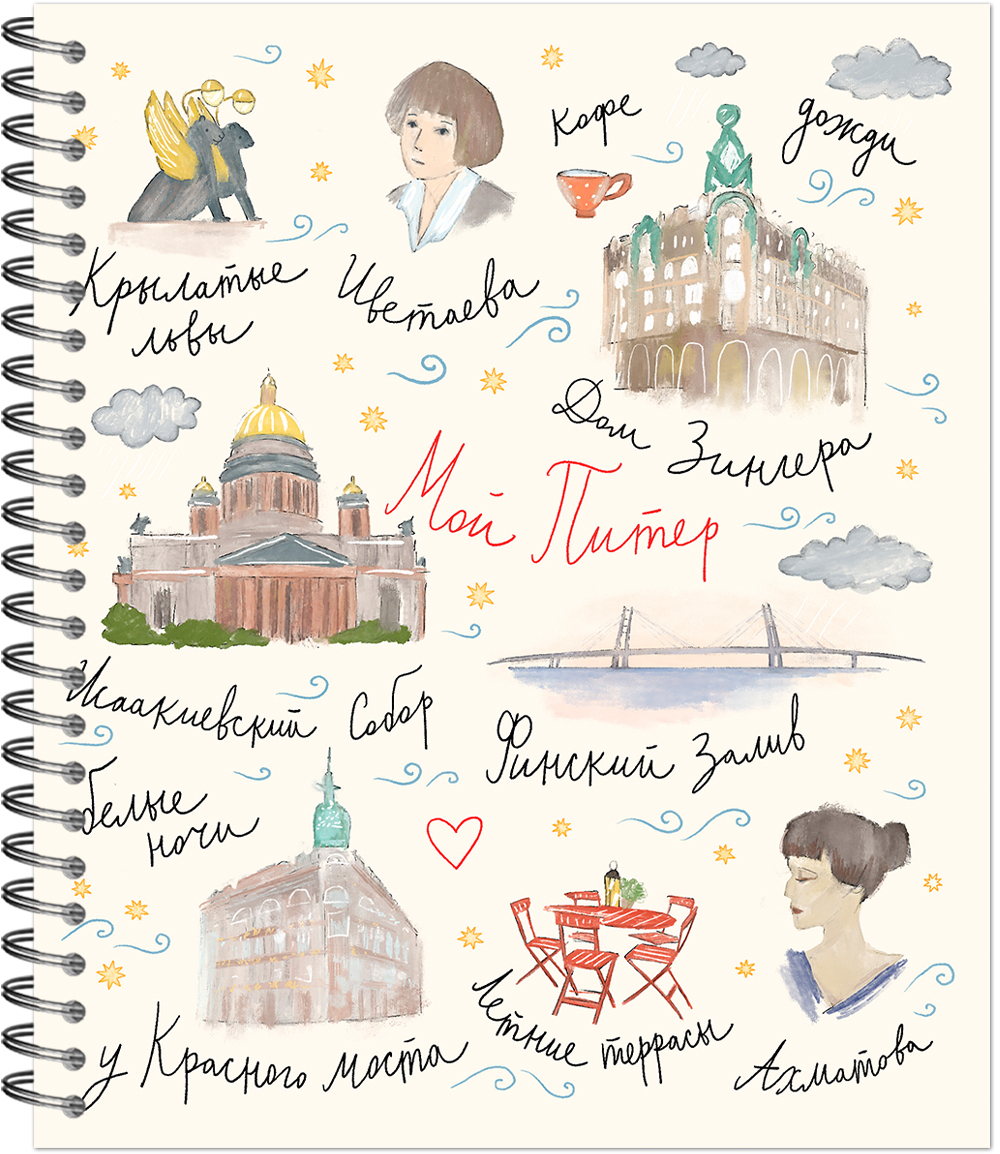 Кофе
дожди
Крылатые
львы
Цветаева
Дом Зингера
Мой Питер
Исаакиевский Собор
Финский Залив
белые
ночи
у Красного моста
Летние террасы
Ахматова